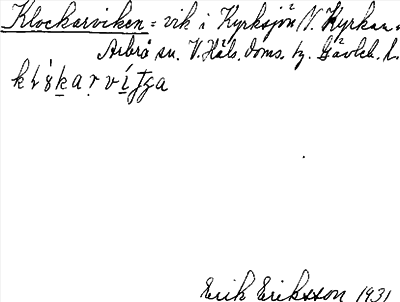 Klockarviken = vik i Kyrksjön V. Kyrkan.
Arbrå sn. V. Häls. doms. tg. Gävleb. l.
Erik Eriksson 1931